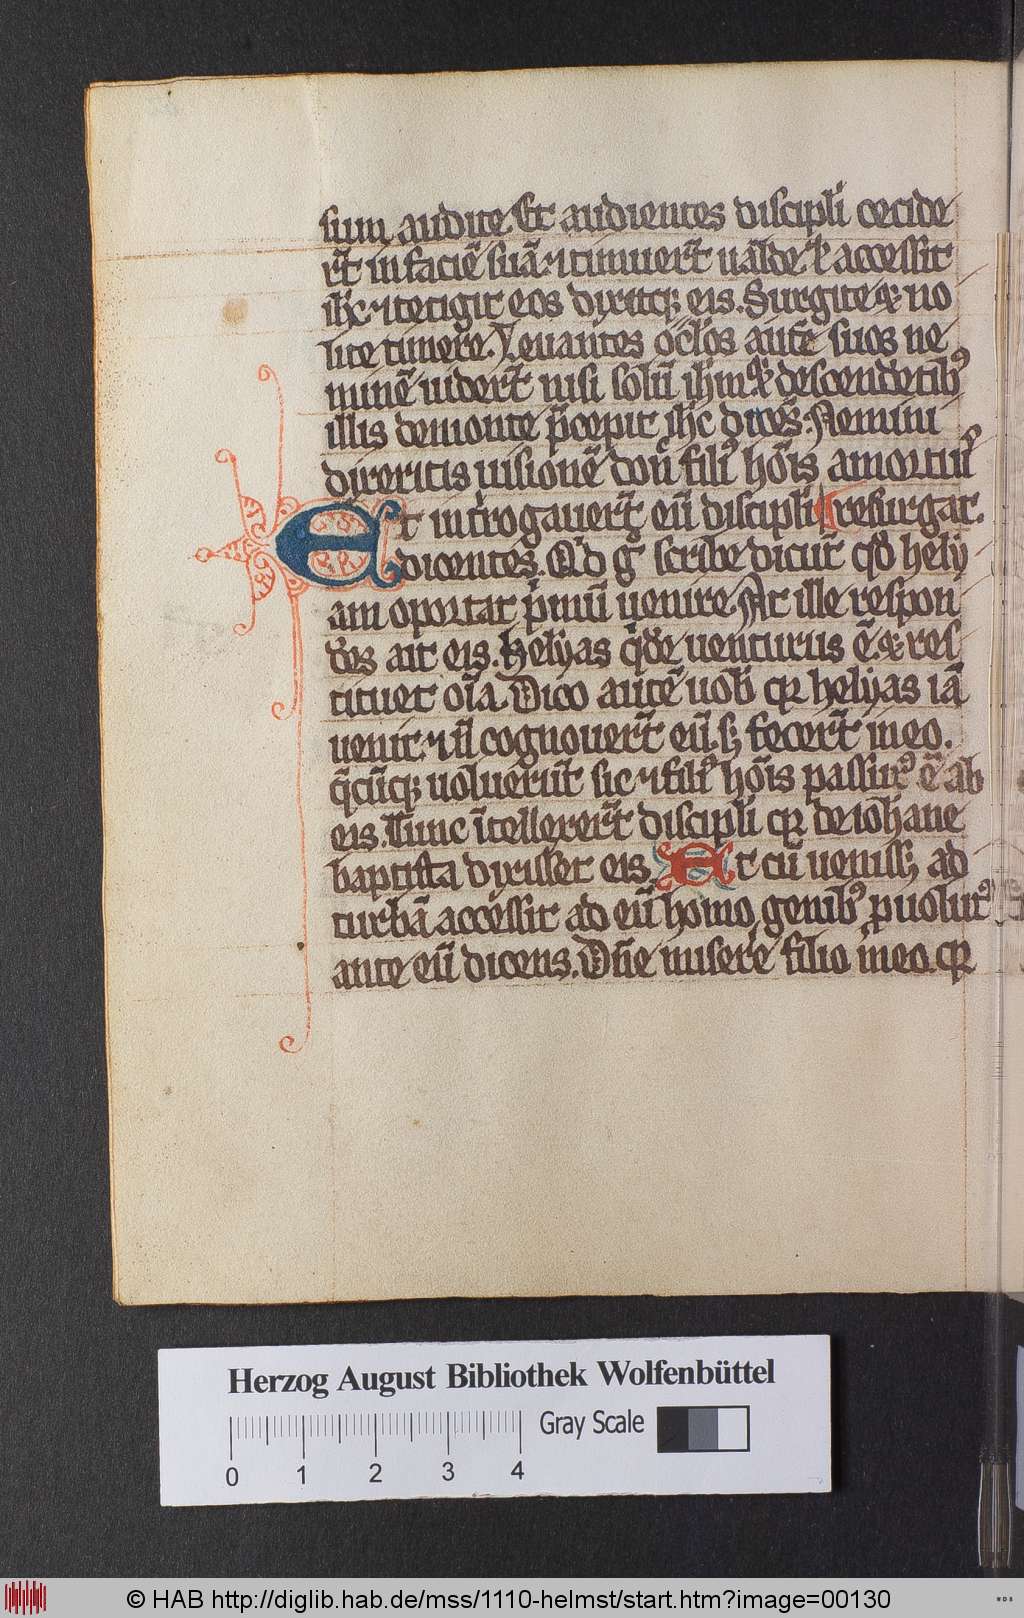 sum audite. Et audientes discipl̅i cecide
rt̅ in facie̅ sua̅. ⁊ timuert̅ ualde. ⁊ accessit
ih̅c ⁊ tetigit eos dixitq; eis. Surgite ⁊ no
lite timere. Leuantes oc̅los aute̅ suos ne
mine̅ uidert̅ nisi solu̅ ih̅m. ⁊ descendetib⁹
illis demonte p̅cepit ih̅c dice̅s. Nemini
dixeritis uisione̅ don̅ fili⁹ ho̅is amortui⁹
Et int̅rogauert̅ eu̅ discipl̅i resurgat.
dicentes. Qd̅ g̊ scribe dicut̅ qd̅ hely
am oportat p̅mu̅ uenire. At ille respon
de̅s ait eis. Helyas q̅de uenturus e̅ ⁊ res
tituet oi̅a. Dico aute̅ uob̅ qꝛ helyas ia̅
uenit. ⁊ n̅ cognouert̅ eu̅. s; fecert̅ in eo.
q̅cu̅q; uolueru̅t sic ⁊ fili⁹ ho̅is passur⁹ e̅ ab
eis. Tunc i̅tellexert̅ discipl̅i qꝛ de ioh̅ane
baptista dixisset eis. Et cu̅ ueniss; ad
turba̅ accessit ad eu̅ homo genib⁹ p̲uolut⁹
ante eu̅ dicens. Dn̅e miserere filio meo. qꝛ
Herzog August Bibliothek Wolfenbüttel
Gray Scale
0 1 2 3 4
© HAB http://diglib.hab.de/mss/1110-helmst/start.htm?image=00130